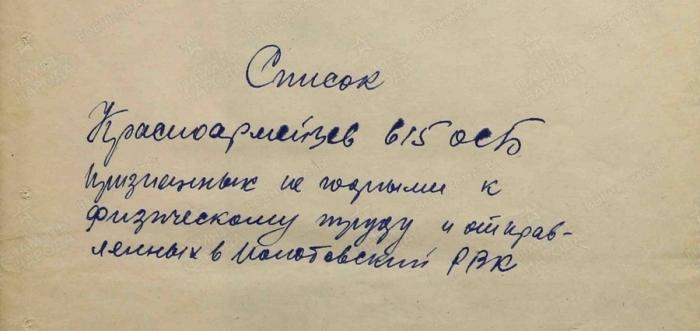 Список
Красноармейцев 615 осб
признанных не годными к
физическому труду и отправ-
ленных в Молотовский РВК